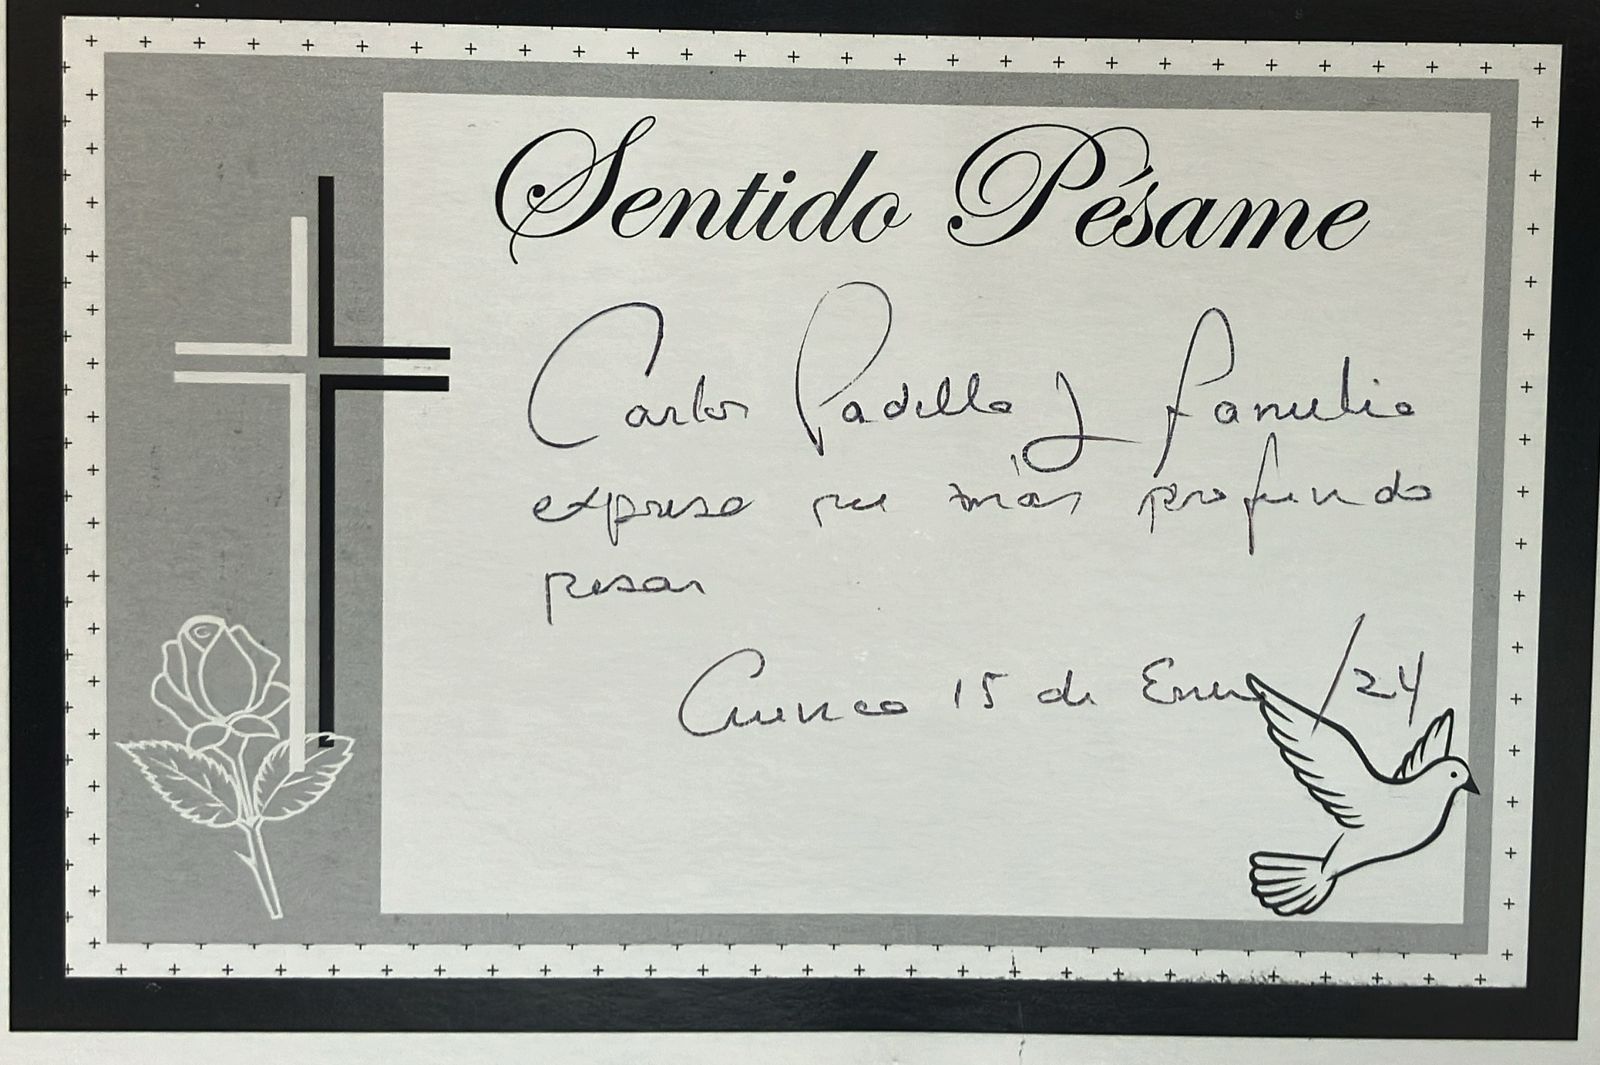 Sentido Pésame
Carlos Padilla y familia
expresa su más profundo
pesar
Cuenca 15 de Enero /24